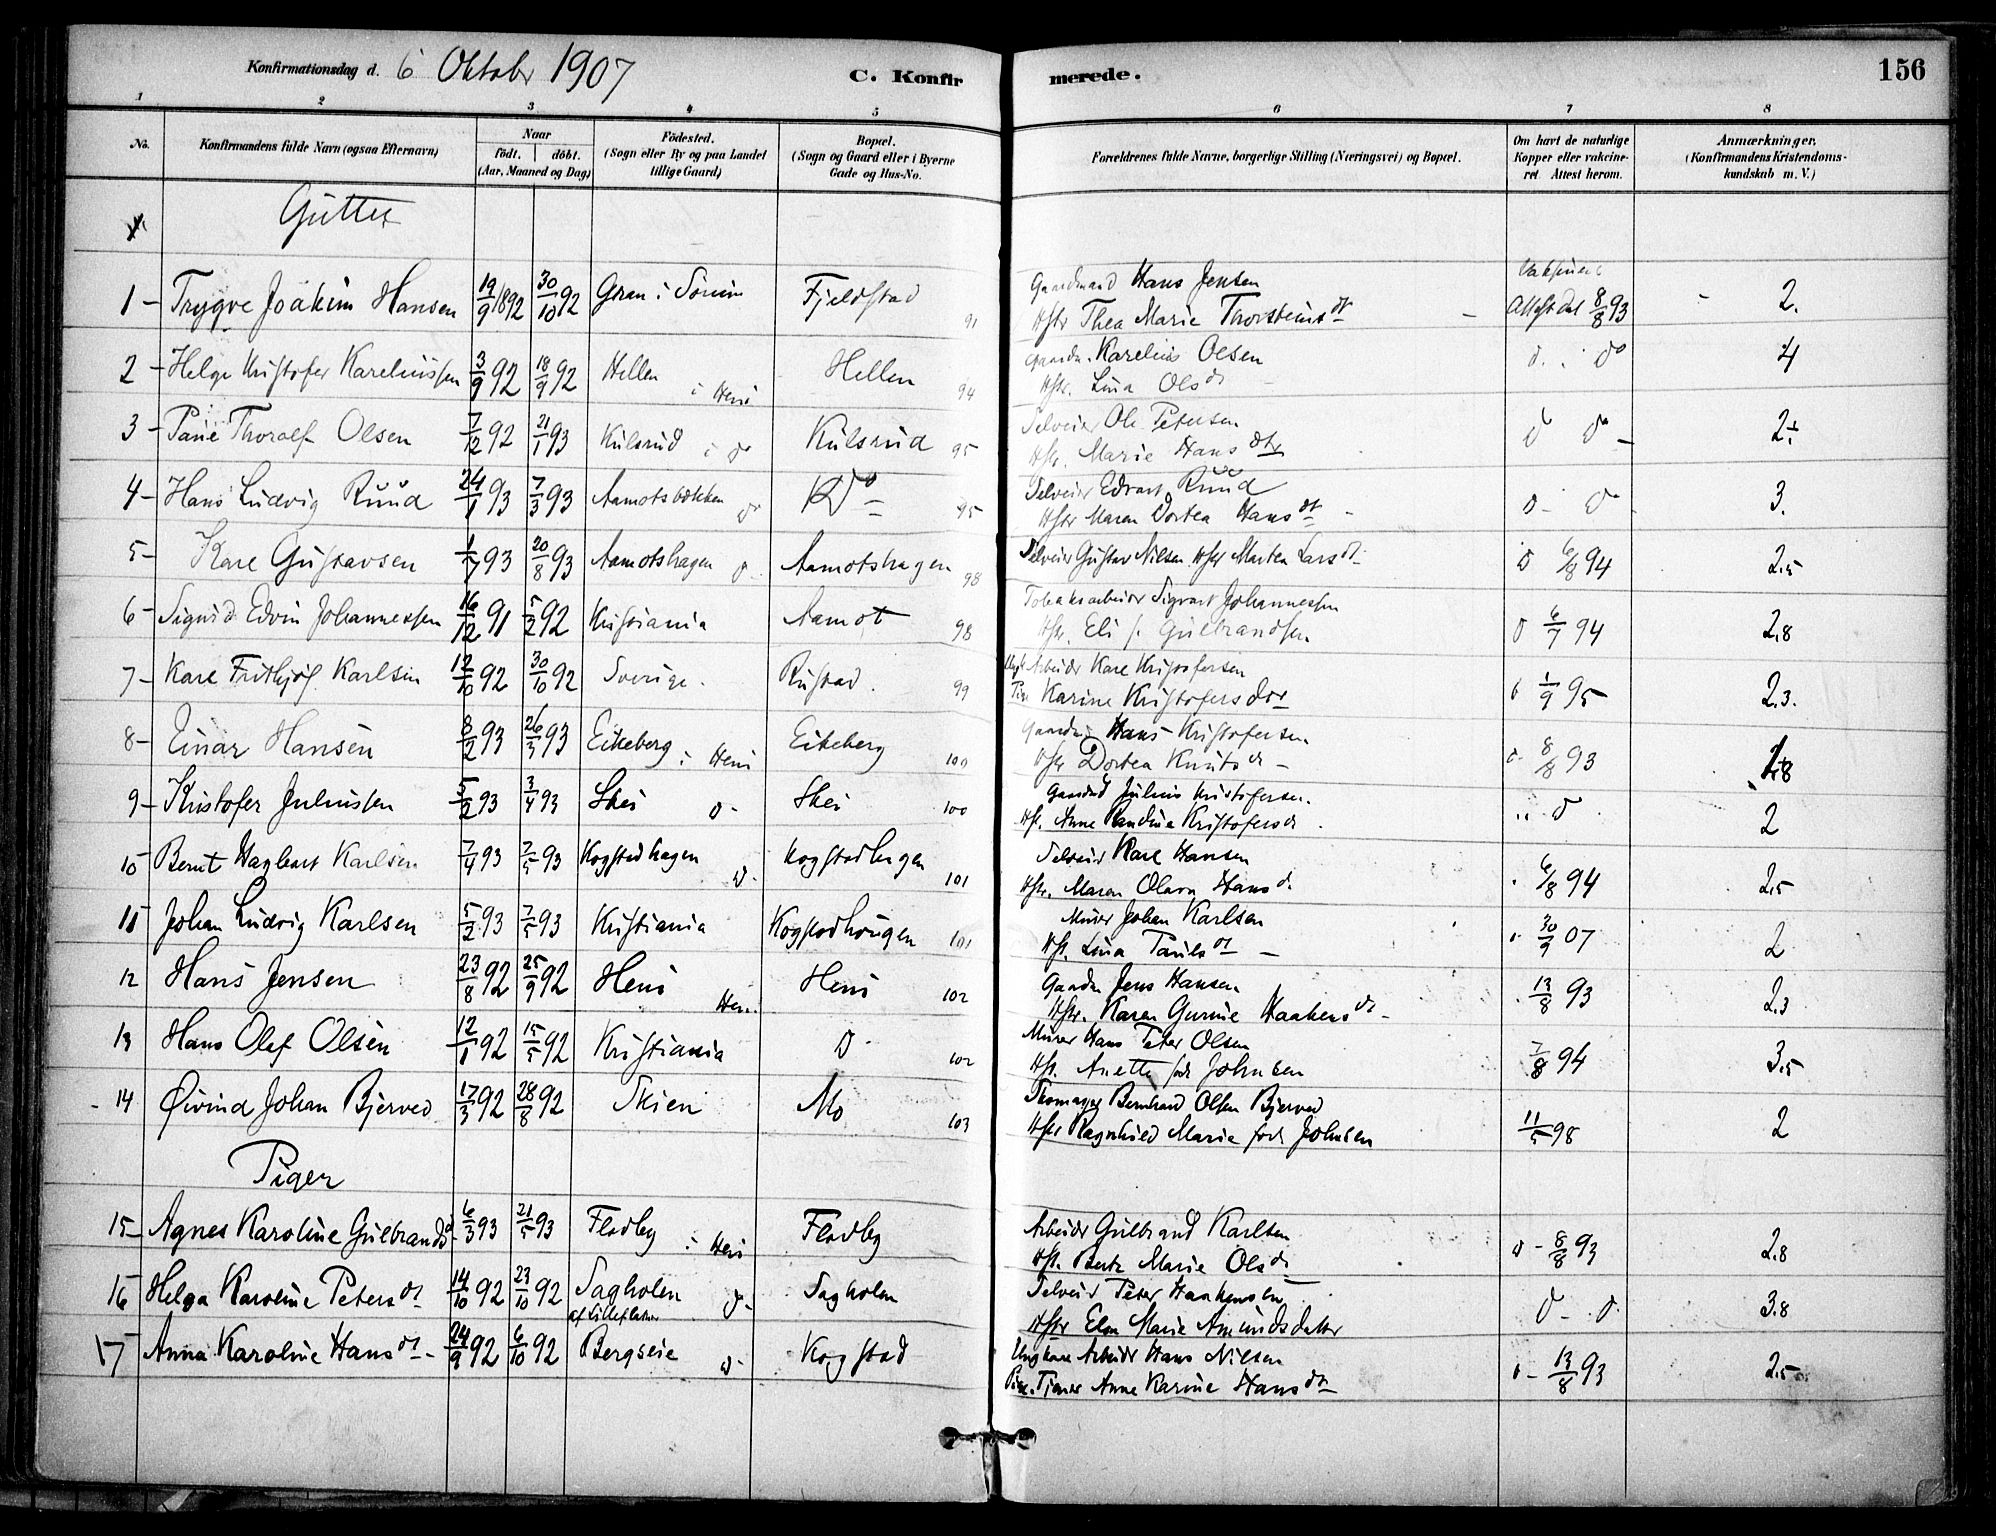 Konfirmationsdag d. 6 Oktober 1907 C. Konfir merede. 156
1 2 3 4 5 6 7 8
No. Konfirmandens fulde Navn (ogsaa Efternavn) Naar födt. döbt. (Aar, Maaned og Dag) Födested. (Sogn eller By og paa Landet tillige Gaard) Bopæl. (Sogn og Gaard eller i Byerne Gade og Hus-No. Forældrenes fulde Navne, borgerlige Stilling (Næringsvei) og Bopæl. Om havt de naturlige Kopper eller vakcineret. Attest herom. Anmærkninger. (Konfirmandens Kristendomskundskab m. V.)
Gutter
1 - Trygve Joakim Hansen 19/9 1892 30/10 92 Gran i Sörum Fjeldstad 91 Gaardmand Hans Jensen Hstr Thea Marie Thorsteinsdt - Attest dat 8/8 93 2.
2 - Helge Kristofer Kareliussen 3/9 92 18/9 92 Hellen i Heni Hellen 94 Gaardm. Karelius Olsen Hstr. Lina Olsdt do 4
3 - Paul Thoralf Olsen 7/12 92 21/1 93 Kulsrud i do Kulsrud 95 Selveier Ole Petersen Hstr. Marie Hansdtr d do 2÷
4 - Hans Ludvig Ruud 24/1 93 7/3 93 Aamotsbakken do do 95 Selveier Edvart Ruud Hstr Maren Dortea Hansdt - d - do 3.
5 - Karl Gustavsen 1/7 93 20/8 93 Aamotshagen d Aamotshagen 98 Selveier Gustav Nilsen Hstr Martea Larsdt d 6/8 94 2.5
6 - Sigurd Edvin Johannessen 16/12 91 5/2 92 Kristiania Aamot 98 Tobaksarbeider Sigvart Johannessen Hstr. Eli f. Gulbrandsen d 6/7 94 2.8
7 - Karl Frithjof Karlsen 12/10 92 30/10 92 Sverige. Rustad. 99 Ungk Arbeider Karl Kristofersen Pige Karine Kristofersdtr 1/9 95 2.3.
8 - Einar Hansen 8/2 93 26/3 93 Eikeberg i Heni Eikeberg 100 Gaardm. Hans Kristofersen Hstr Dortea Knutsdt - 8/8 93 1.8
9 - Kristofer Juliussen 5/2 93 3/4 93 Skei d - Skei 100 Gaardmd Julius Kristofersen. Hst. Anne Randine Kristofersdt. d 2
10 Bernt Hagbart Karlsen 7/4 93 7/5 93 Kogstadhagen d - Kogstadhagen 101 Selveier Karl Hansen Hstr. Maren Olava Hansdt. 6/8 94 2.5
11 Johan Ludvig Karlsen 5/2 93 7/5 93 Kristiania Kogstadhougen 101 Murer Johan Karlsen Hst. Lina Paulsdt - 30/9 07 2
12 Hans Jensen 23/8 92 25/9 92 Heni Heni Heni 102 Gaardm Jens Hansen Hstr. Karen Gurine Haakensdt - 13/8 93 2.3
13 Hans Olaf Olsen 12/1 92 15/5 92 Kristiania d - 102 Murer Hans Peter Olsen Hst. Anette föd Johnsen 7/8 94 3.5
- 14 Øivind Johan Bjerved 17/3 92 28/8 92 Skien Mo 103 Bernhard Olsen Bjerved Hstr Ragnhild Maria född Johnsen 11/5 98 2
Piger
15 - Agnes Karoline Gulbrandsd. 6/3 93 21/5 93 Flodby i Heni Flodby Arbeider Gulbrand Karlsen Hst. Berte Marie Olsdt d - 8/8 93 2.8
16 Helga Karoline Petersdt 14/10 92 23/10 92 Sagholen d - Sagholen Selveier Peter Haakensen Hstr Elen Marie Amundsdatter d - d. 3.8
17 Anna Karoline Hansdt - 24/9 92 6/10 92 Bergseie d - Kogstad Ungkarl Arbeider Hans Nilsen Pige Tjener Anne Karine Hansdt - 13/8 93 2.5